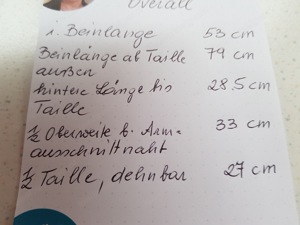 Overall
i. Beinlänge 53 cm
Beinlänge ab Taille 79 cm
außen
hintere Länge bis 28.5 cm
Taille
1/2 Oberweite b. Arm= 33 cm
ausschnittnaht
1/2 Taille, dehnbar 27 cm